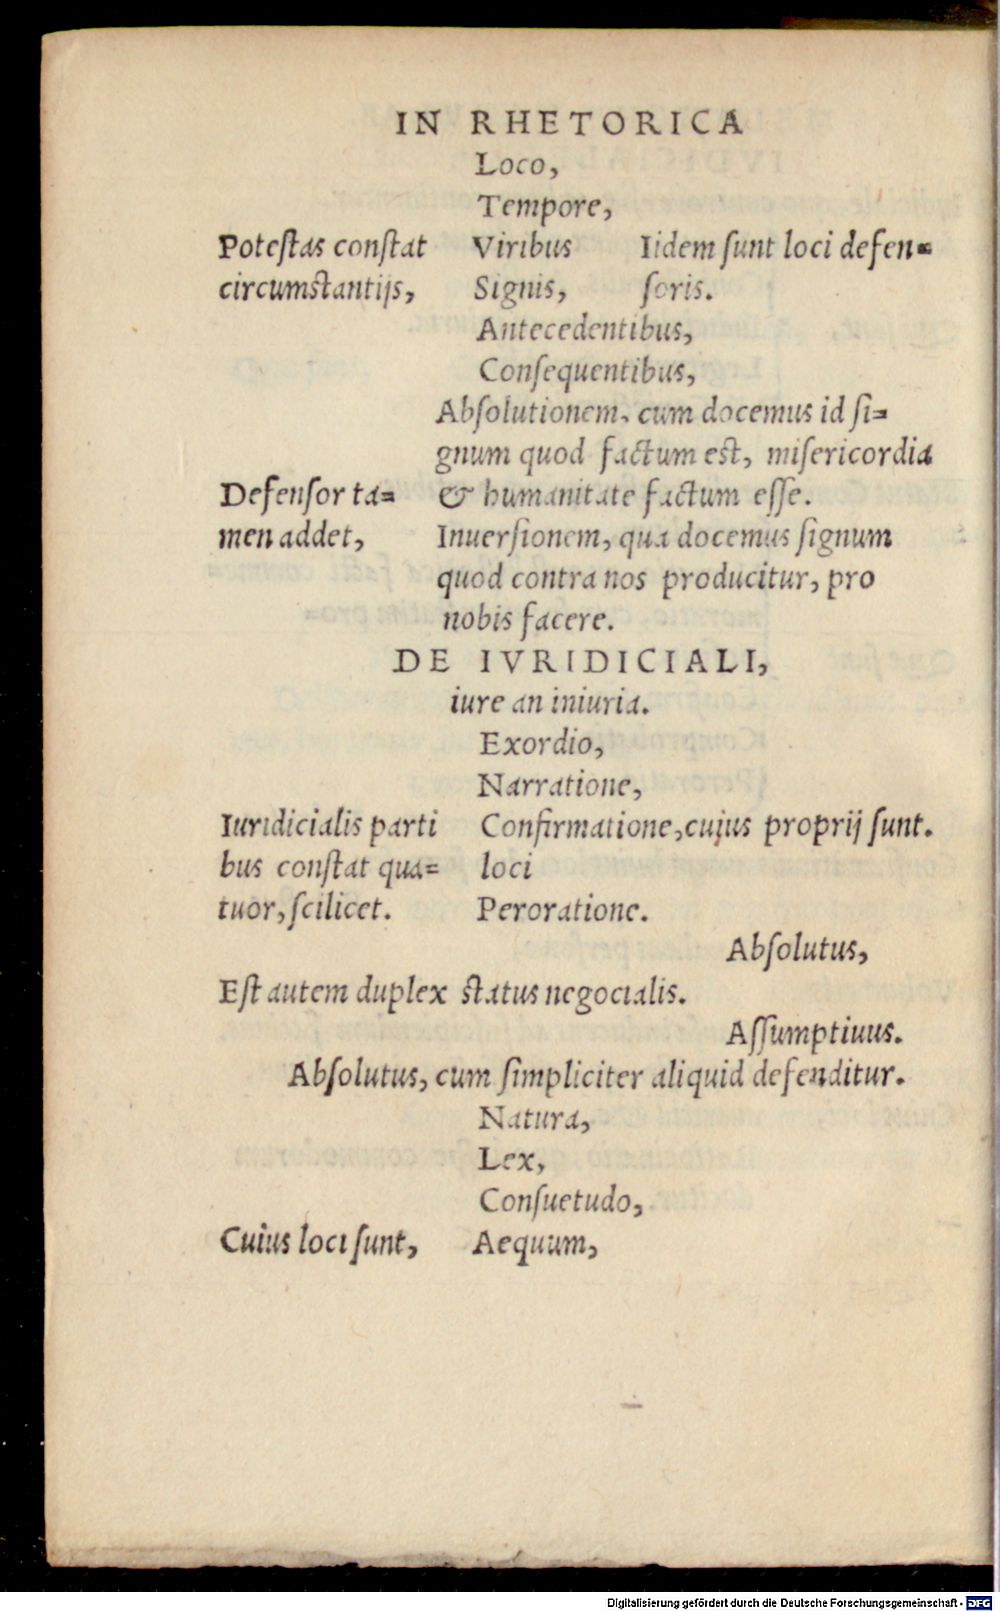 IN RHETORICA
Loco,
Tempore,
Poteſtas conſtat Viribus Iidem ſunt loci defen=
circumſtantijs, Signis, ſoris.
Antecedentibus,
Conſequentibus,
Abſolutionem, cum docemus id ſi=
gnum quod factum eſt, miſericordia
Defenſor ta= & humanitate factum eſſe.
men addet, Inuerſionem, qua docemus ſignum
quod contra nos producitur, pro
nobis facere.
DE IVRIDICIALI,
iure an iniuria.
Exordio,
Narratione,
Iuridicialis parti Confirmatione, cuius proprij ſunt.
bus conſtat qua= loci
tuor, ſcilicet. Peroratione.
Abſolutus,
Eſt autem duplex ſtatus negocialis.
Aſſumptiuus.
Abſolutus, cum ſimpliciter aliquid defenditur.
Natura,
Lex,
Conſuetudo,
Cuius loci ſunt, Aequum,
Digitalisierung gefördert durch die Deutsche Forschungsgemeinschaft - DFG